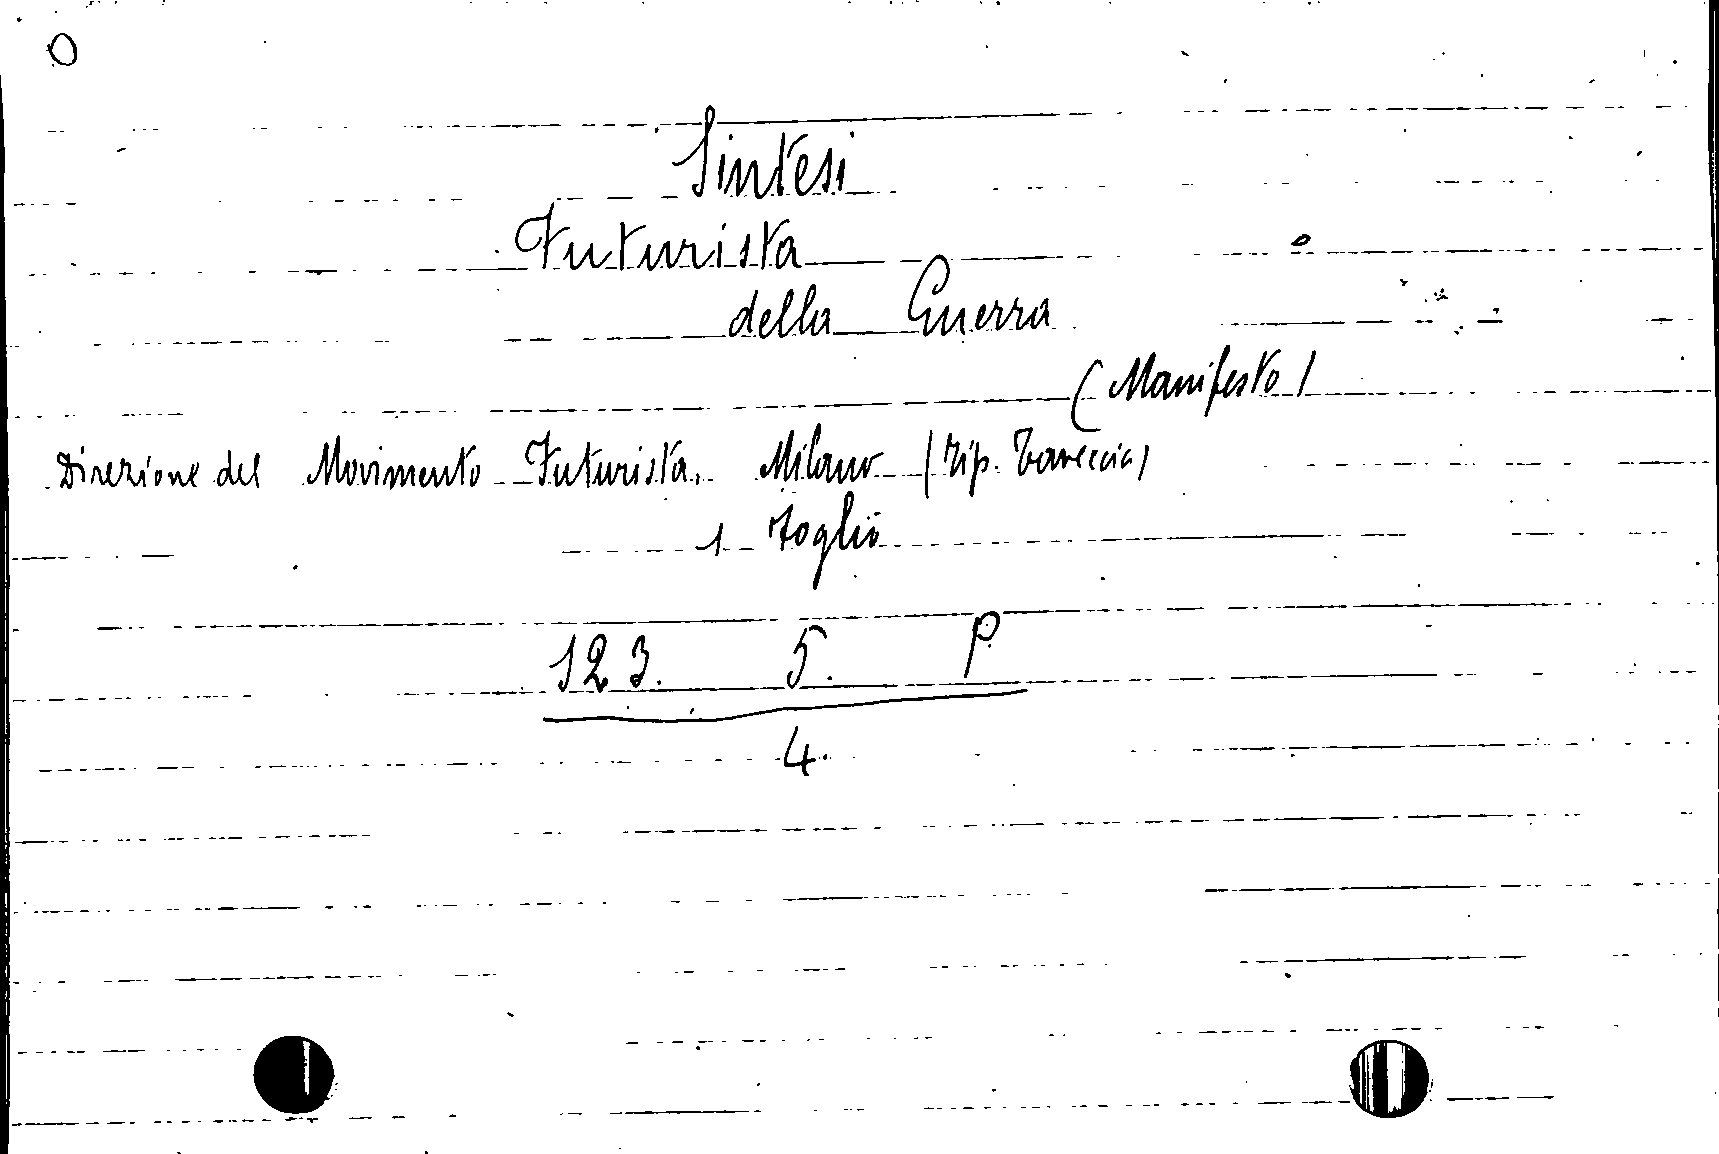 Sintesi
Futurista
della Guerra
(Manifesto)
Direzione del Movimento Futurista. Milano (tip. Taveggia)
1 foglio
123. 5. P.
4.